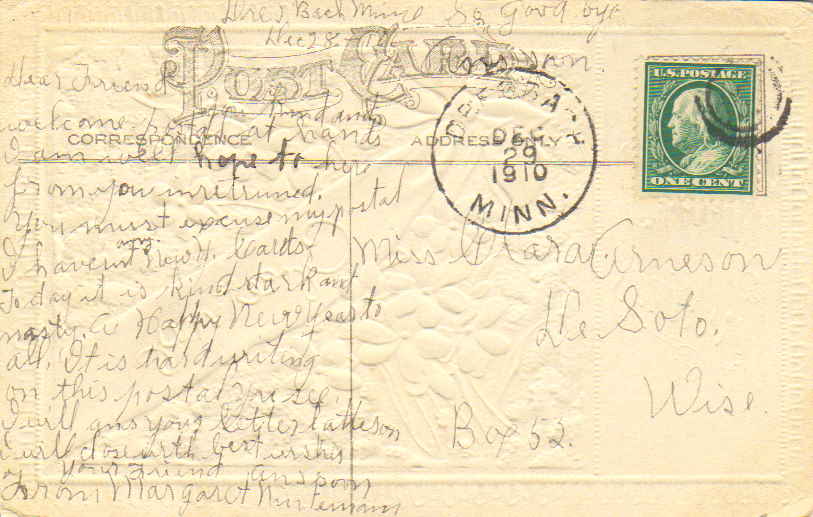 Beach Minn So Good bye
Dec 28
POST CARD
ans soon.
Dear Friend
Your kind and
welcome postal at hand
CORRESPONDENCE
ADDRESS ONLY
I am well hope to here
from you in retruned.
You must excuse my postal
I havent any New Y. Cards
To day it is kind dark and
nasty. A Happy New Year to
all. It is hard writing
on this postal
I will ans your letter latheson
I will close with best wishes
Your Friend ans soon
From Margaret
DEC
29
1910
MINN.
U.S. POSTAGE
ONE CENT
Miss Clara Arneson
De Soto.
Wisc.
Box 52.